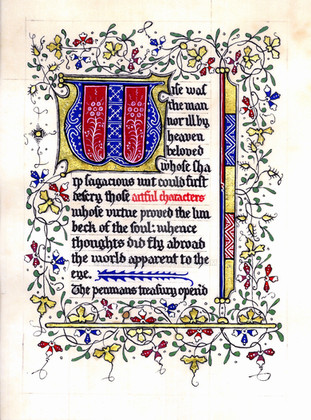 Wise was
the man
nor ill by
heaven
beloved
whose sha
rp sagacious wit could first
descry those artful characters
whose virtue proved the lim
beck of the soul: whence
thoughts did fly abroad
the world apparent to the
eye.
The penmans treasury open'd